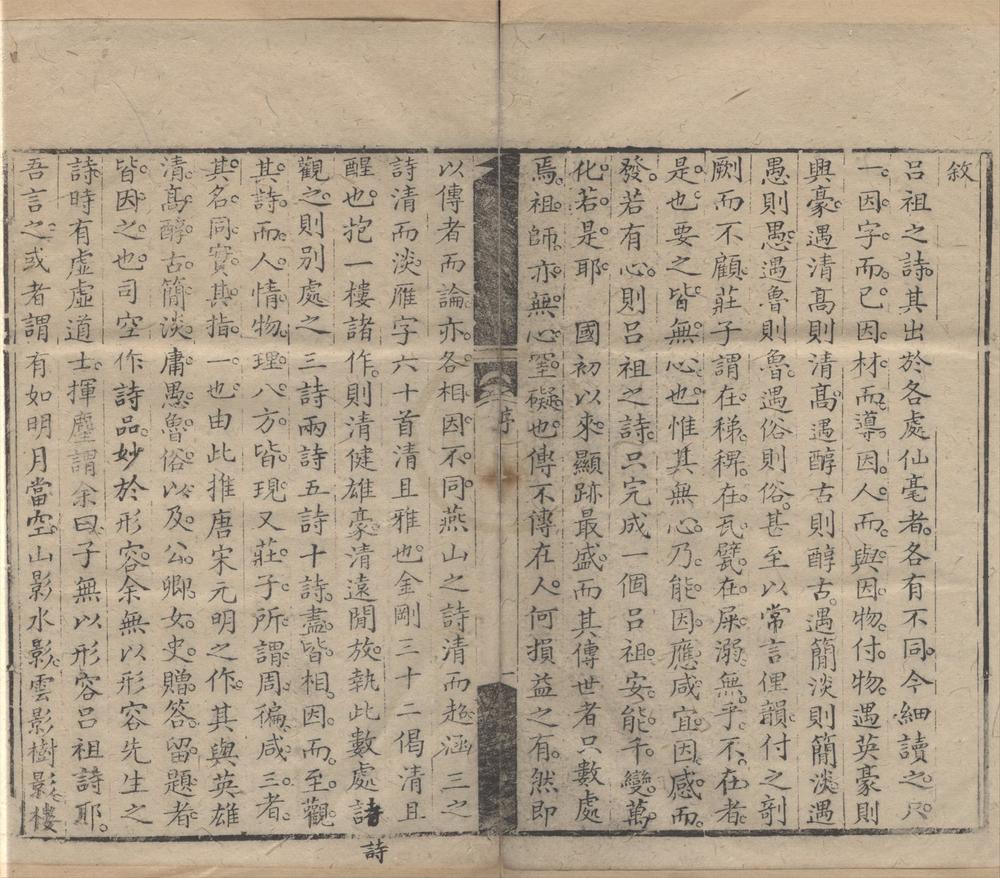 敘
呂祖之詩其出於各處仙毫者各有不同今細讀之只
一因字而已因材而導因人而與因物付物遇英豪則
興豪遇清高則清高遇醇古則醇古遇簡淡則簡淡遇
愚則愚遇魯則魯遇俗則俗甚至以常言俚韻付之剞
劂而不顧莊子謂在稊稗在瓦甓在屎溺無乎不在者
是也要之皆無心也惟其無心乃能因應咸宜因感而
發若有心則呂祖之詩只完成一個呂祖安能千變萬
化若是耶　國初以來顯跡最盛而其傳世者只數處
焉祖師亦無心罣礙也傳不傳在人何損益之有然即
序
一
以傳者而論亦各相因不同燕山之詩清而超涵三之
詩清而淡雁字六十首清且雅也金剛三十二偈清且
醒也抱一樓諸作則清健雄豪清遠閒放執此數處詩
詩
觀之則別處之三詩兩詩五詩十詩盡皆相因而至觀
其詩而人情物理八方皆現又莊子所謂周徧咸三者
其名同實其指一也由此推唐宋元明之作其與英雄
清高醇古簡淡庸愚魯俗以及公卿女史贈答留題者
皆因之也司空作詩品妙於形容余無以形容先生之
詩時有虛虛道士揮麈謂余曰子無以形容呂祖詩耶
吾言之或者謂有如明月當空山影水影雲影樹影樓